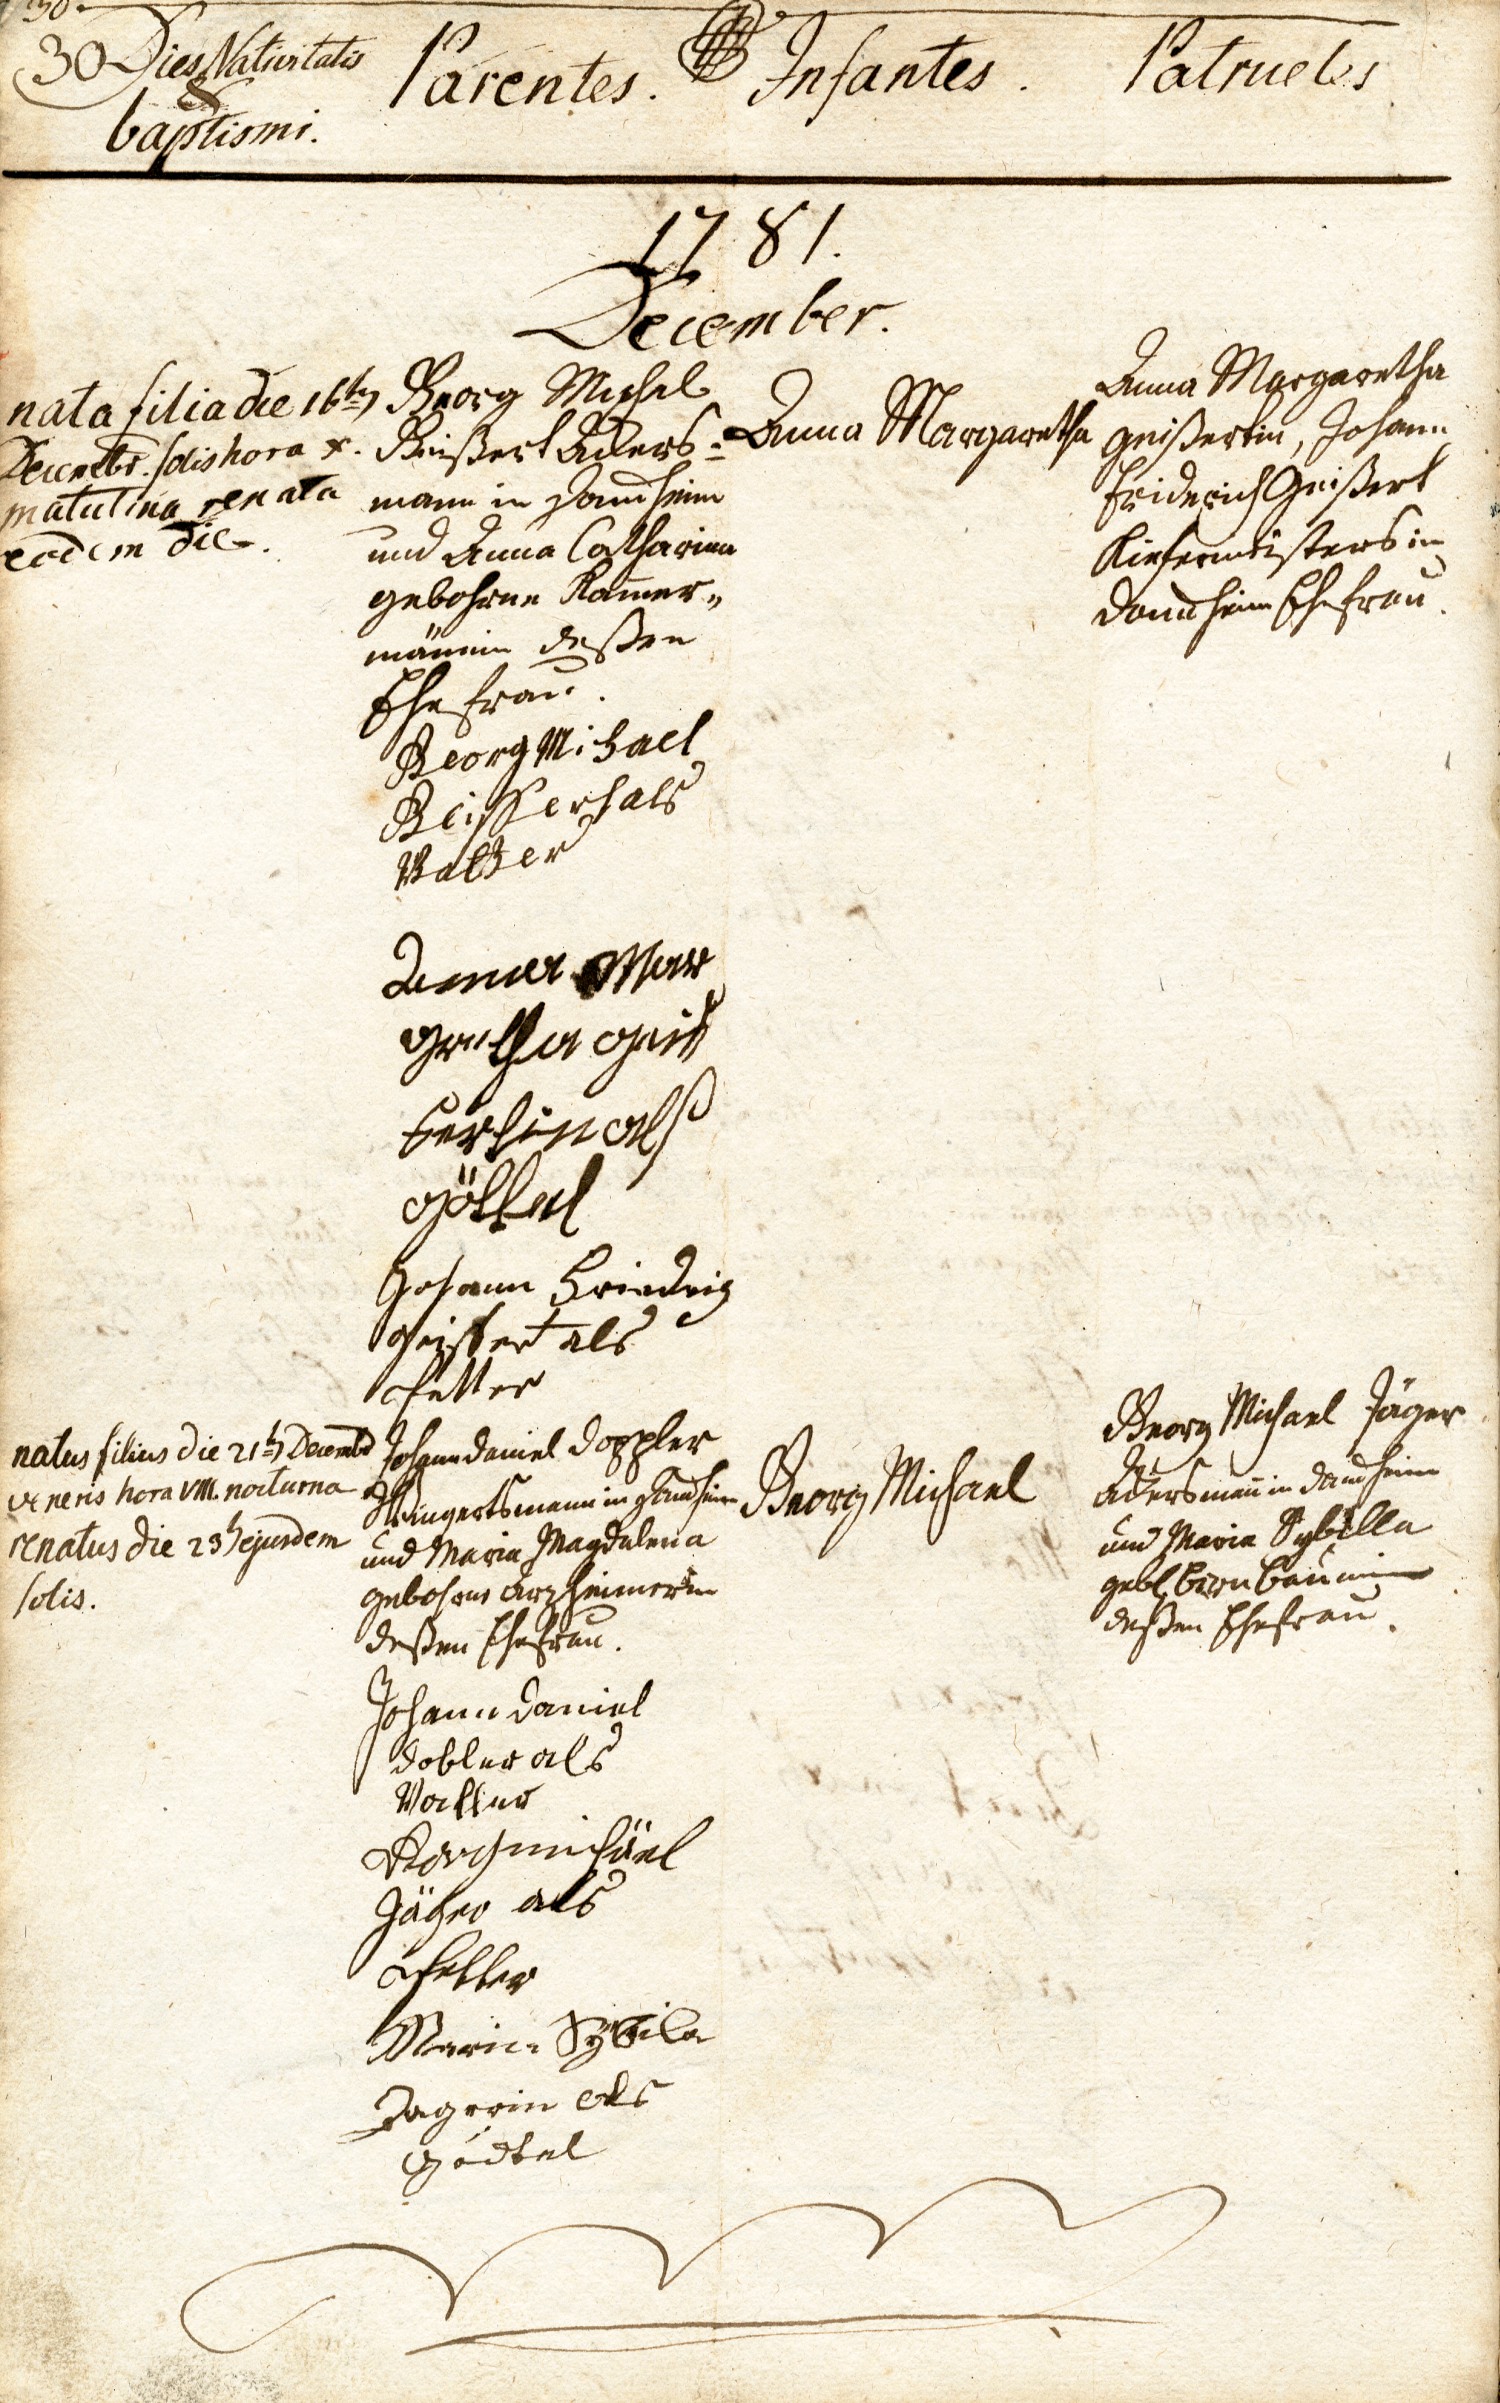 30.
30 Dies Nativitatis
&
baptismi.
Parentes.
Infantes.
Patrueles
1781.
December.
nata filia die 16ten
Decembr. solis hora X.
matutina renata
eodem die.
Georg Michel
Geißert Ackers-
mann in Damheim
und Anna Catharina
gebohrne Kam̅er„
männin deßen
Ehefrau.
Georg Michael
Geissert als
Vatter
Anna Mar
gretha Geis
sertin als
Göttel
Johann Friedrig
Geissert als
Pfetter
Anna Margaretha
Anna Margaretha
Geißertin, Johann
Friderich Geißert
Kiefermeisters in
Damheim Ehefrau.
natus filius die 21ten Decembr
veneris hora VIII. nocturna
renatus die 23ten ejusdem
solis.
Johann Daniel Doppler
Wingertsmann in
und Maria Magdalena
gebohrne Arzheimerin
deßen Ehefrau.
Johann Daniel
Dobler als
Vatter
Georg michäel
Jäger als
Pfetter
Maria Sybila
Jagerin als
Gödtel
Georg Michael
Georg Michael Jäger
Ackersman̅ in Damheim
und Maria Sybilla
gebl. Birnbäumin
deßen Ehefrau.